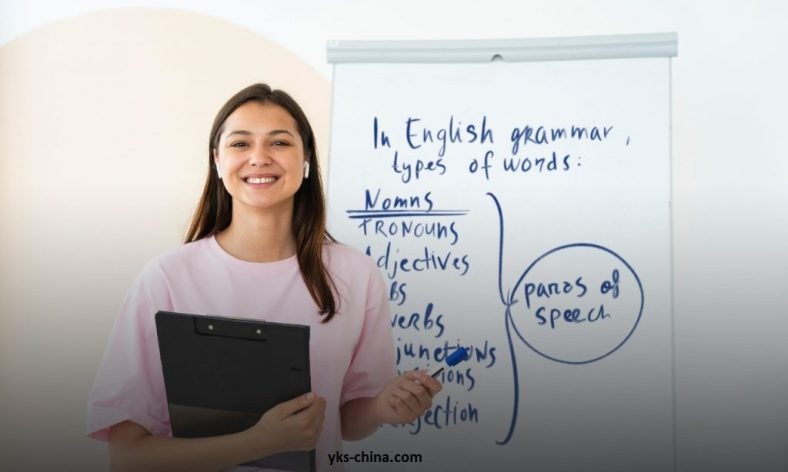 In English grammar,
types of words:
Nomns
PRONOUNS
Adjectives
bs
verbs
junctions
sitions
jection
parts of
speech
yks-china.com